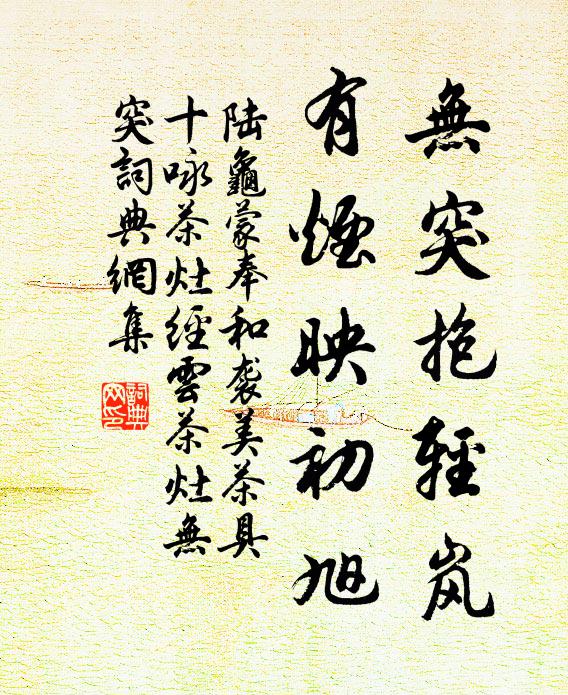 無突抱輕岚
有煙映初旭
陆龜蒙奉和袭美茶具
十咏茶灶經雲茶灶無
突詞典網集
詞典
网印